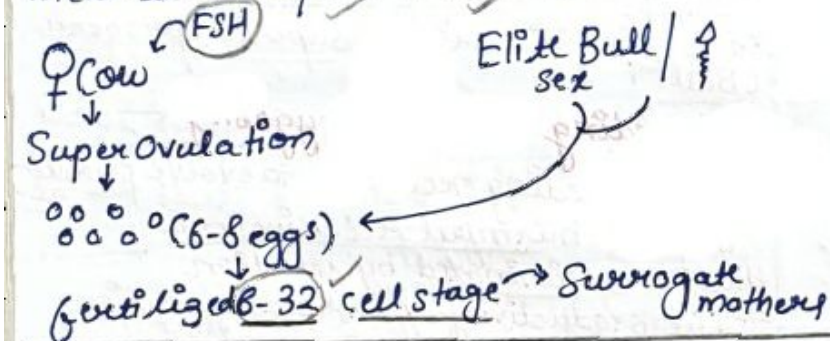 FSH
♀Cow
Elite Bull /
sex
Super Ovulation
(6-8 eggs)
fertilized 8-32 cell stage → Surrogate
mothers